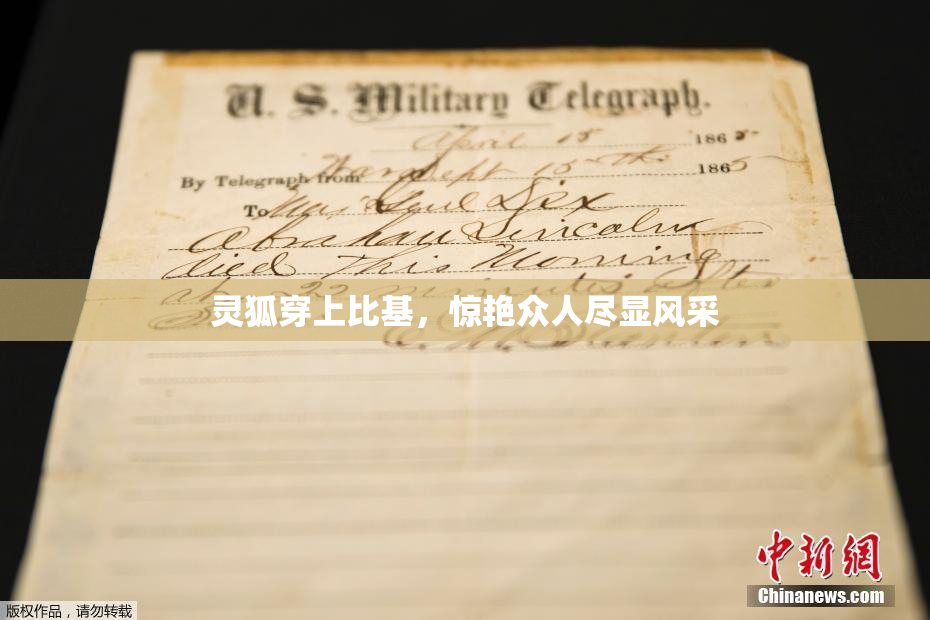 U. S. Military Telegraph.
April 15 1865
By Telegraph from War Dept 15th 1865
To Maj Genl Dix
Abraham Lincoln
died This Morning
at 22 minutes after
灵狐穿上比基，惊艳众人尽显风采
E. M. Stanton
中新網
Chinanews.com
版权作品，请勿转载